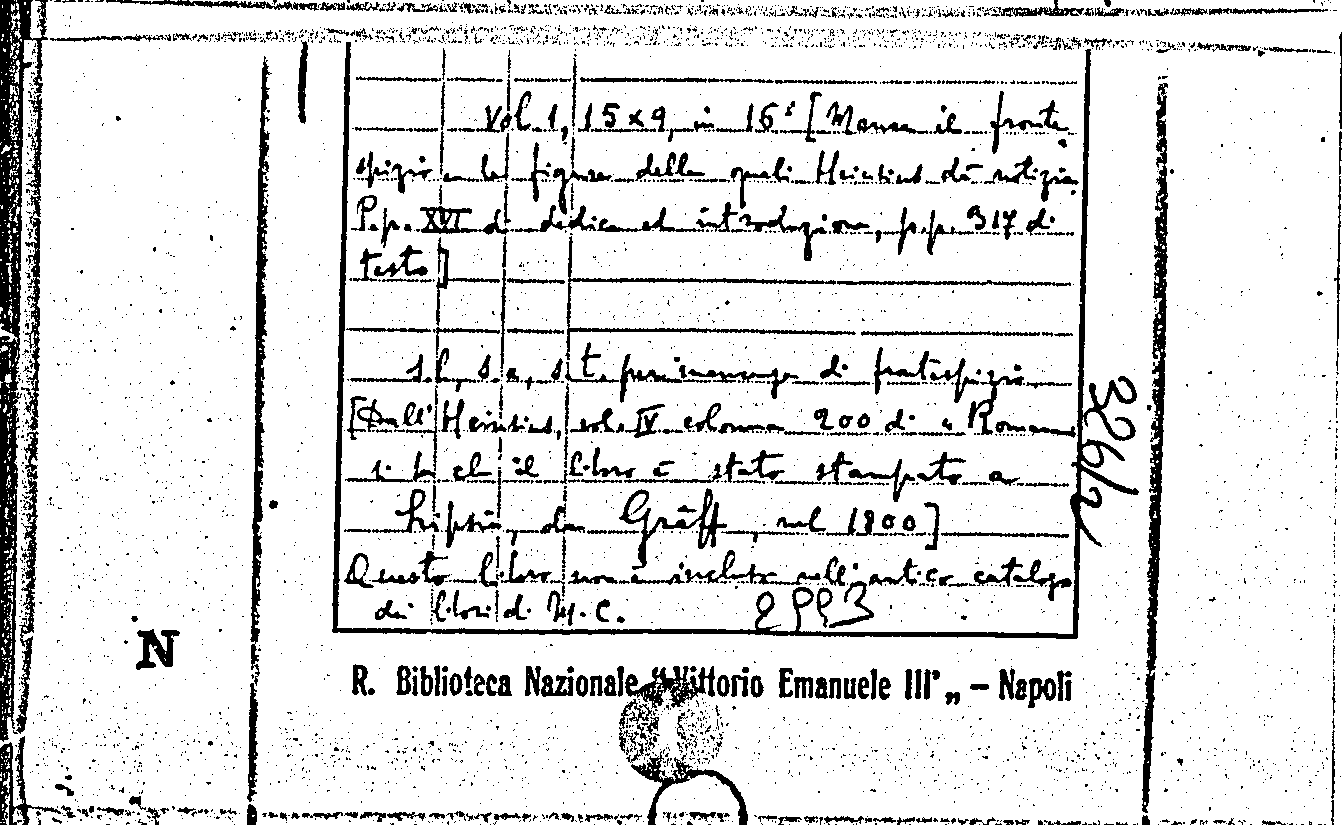 Vol. 1, 15x9, in 16° [Manca il fronte
spizio e le figure delle quali Heinsius dà notizia
P.p. XVI di dedica ed introduzione, p.p. 317 di
testo]
s.l., s.a., s.t. per mancanza di frontespizio
[Dall'Heinsius, vol. IV colonna 200 di "Romane
si ha che il libro è stato stampato a
Lipsia, da Gräff, nel 1800]
Questo libro non è incluso nell'antico catalogo
dei libri di M.C. 2993
326/2
N
R. Biblioteca Nazionale "Vittorio Emanuele III" „ – Napoli